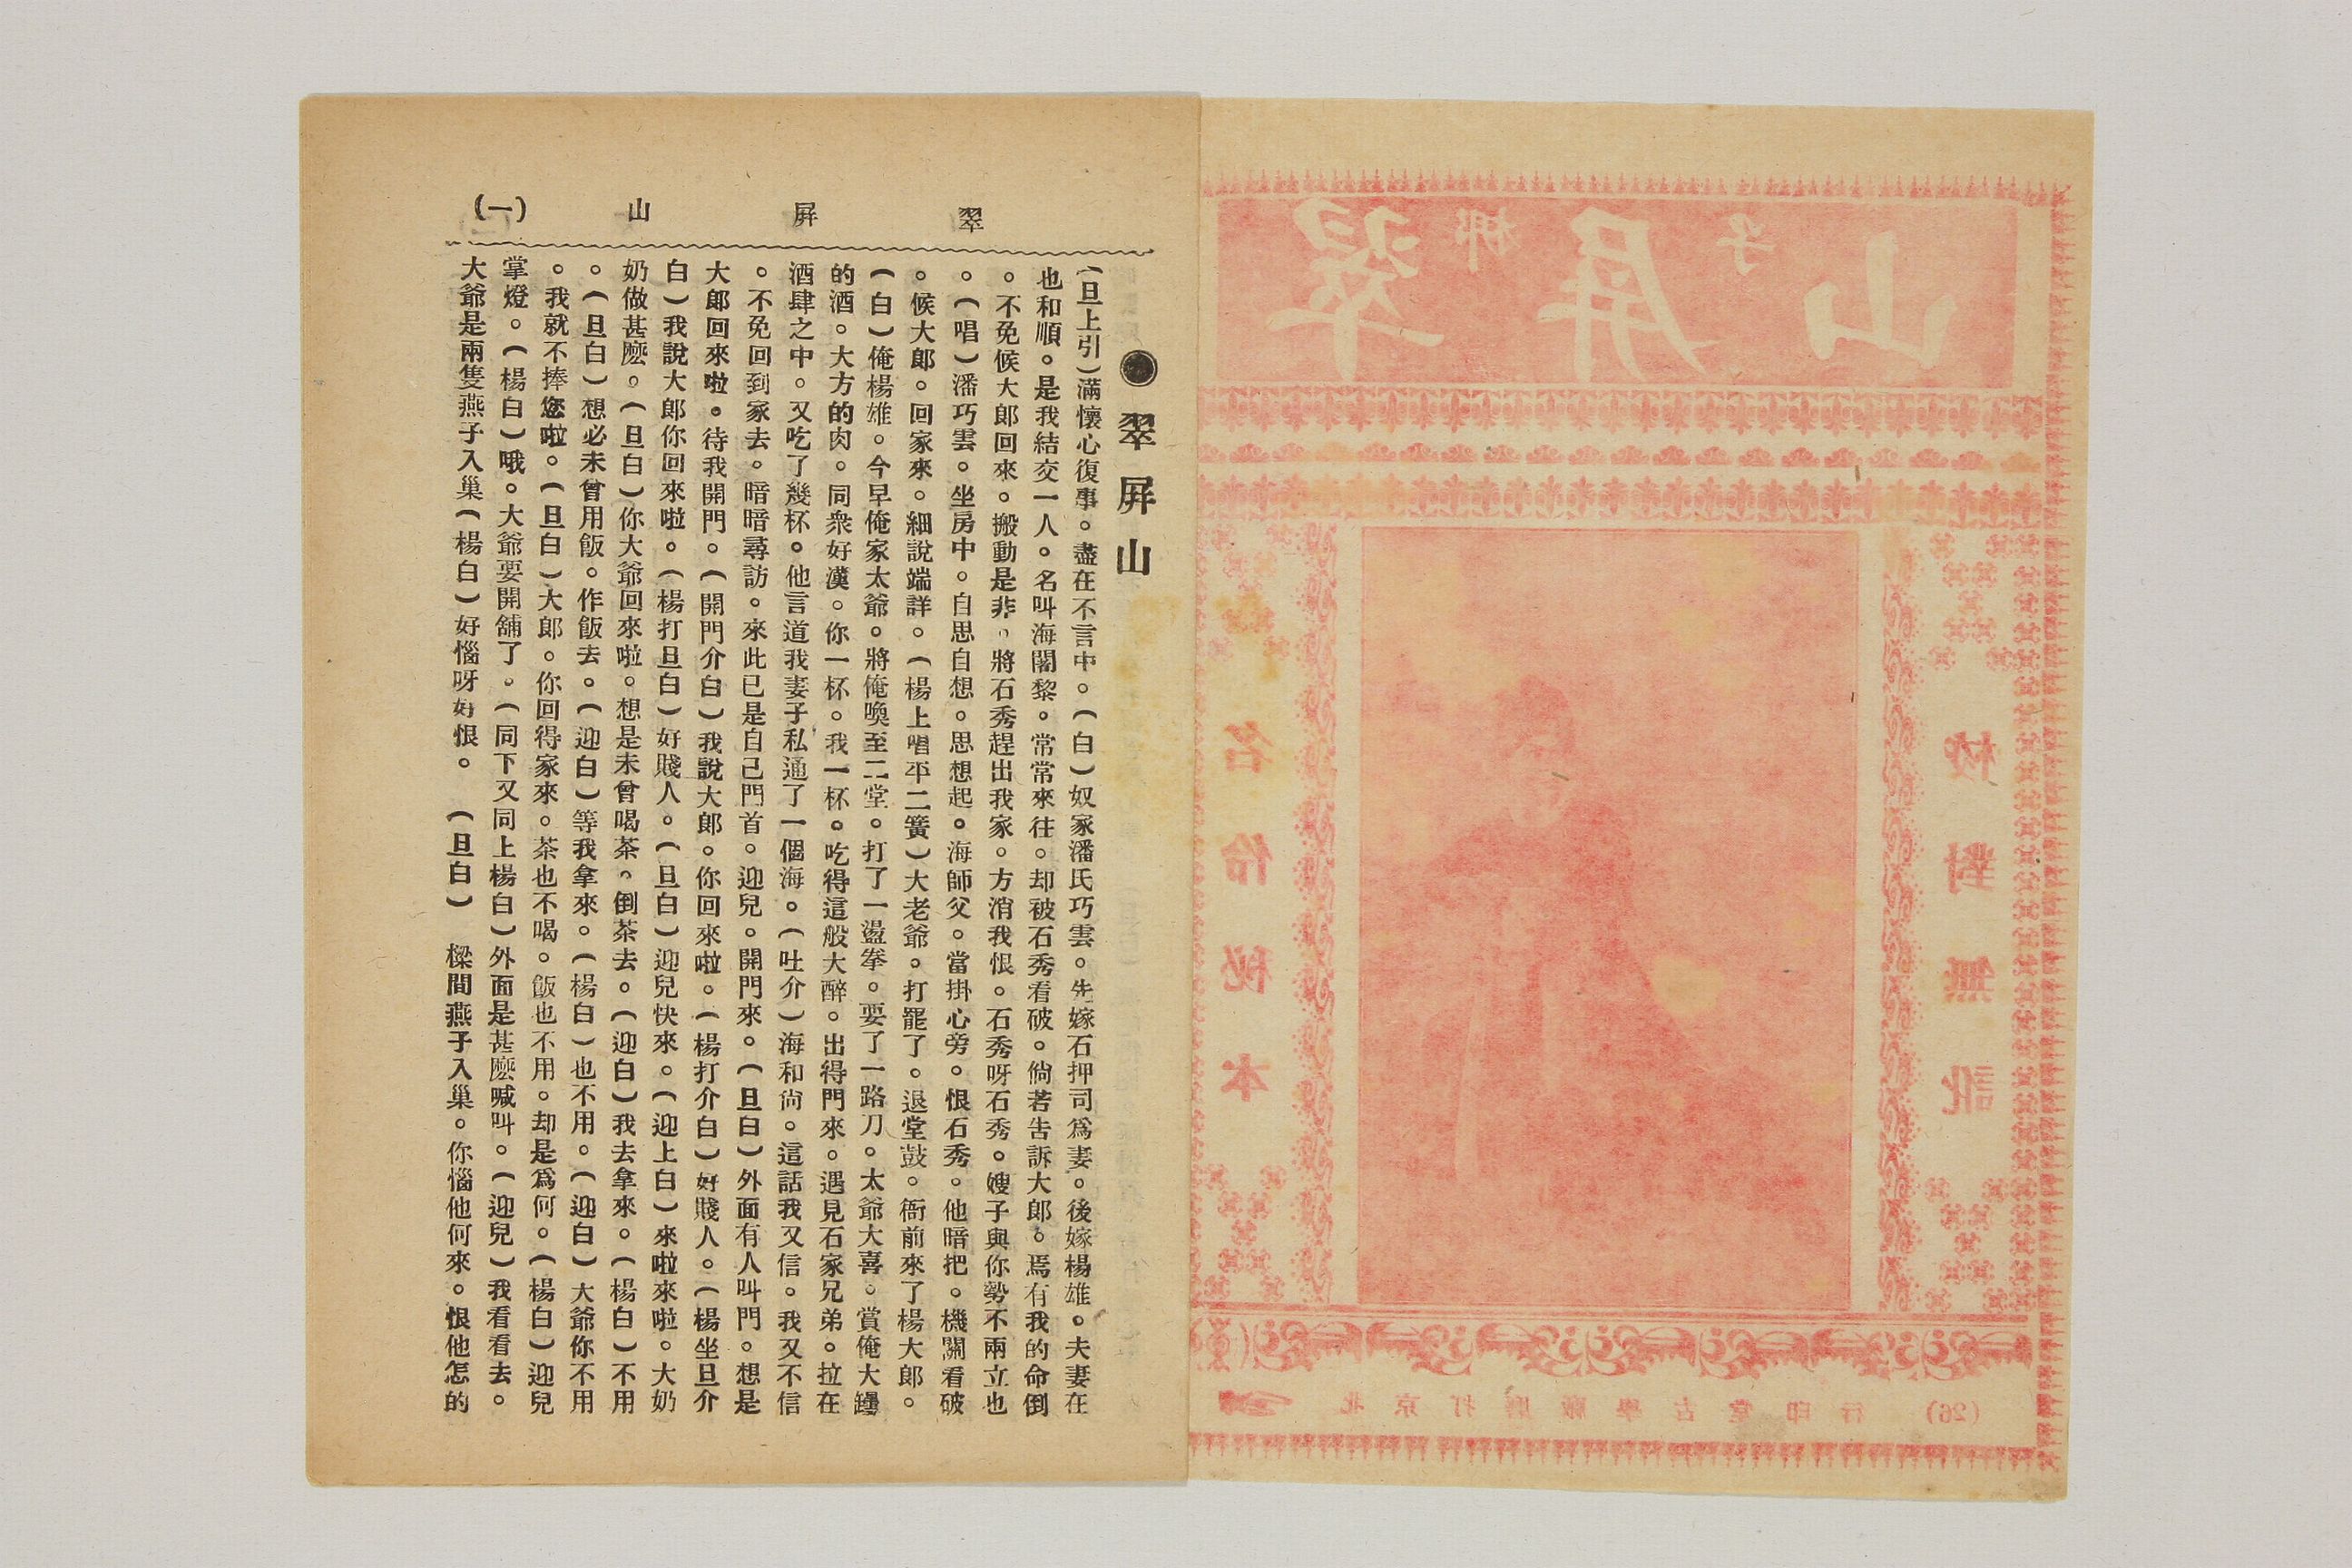 翠屏山
梆子
校對無訛
名伶秘本
北京打磨廠學古堂印行
(26)
翠屏山(一)
●翠屏山
(旦上引)滿懷心復事。盡在不言中。(白)奴家潘氏巧雲。先嫁石押司爲妻。後嫁楊雄。夫妻在
也和順。是我結交一人。名叫海闍黎。常常來往。却被石秀看破。倘若告訴大郎。焉有我的命倒
。不免候大郎回來。搬動是非。將石秀趕出我家。方消我恨。石秀呀石秀。嫂子與你勢不兩立也
。(唱)潘巧雲。坐房中。自思自想。思想起。海師父。當掛心旁。恨石秀。他暗把。機關看破
。候大郎。回家來。細說端詳。(楊上唱平二簧)大老爺。打罷了。退堂鼓。衙前來了楊大郎。
(白)俺楊雄。今早俺家太爺。將俺喚至二堂。打了一盪拳。耍了一路刀。太爺大喜。賞俺大罈
的酒。大方的肉。同衆好漢。你一杯。我一杯。吃得這般大醉。出得門來。遇見石家兄弟。拉在
酒肆之中。又吃了幾杯。他言道我妻子私通了一個海。(吐介)海和尙。這話我又信。我又不信
。不免回到家去。暗暗尋訪。來此已是自己門首。迎兒。開門來。(旦白)外面有人叫門。想是
大郎回來啦。待我開門。(開門介白)我說大郎。你回來啦。(楊打介白)好賤人。(楊坐旦介
白)我說大郎你回來啦。(楊打旦白)好賤人。(旦白)迎兒快來。(迎上白)來啦來啦。大奶
奶做甚麽。(旦白)你大爺回來啦。想是未曾喝茶。倒茶去。(迎白)我去拿來。(楊白)不用
。(旦白)想必未曾用飯。作飯去。(迎白)等我拿來。(楊白)也不用。(迎白)大爺你不用
。我就不捧您啦。(旦白)大郎。你回得家來。茶也不喝。飯也不用。却是爲何。(楊白)迎兒
掌燈。(楊白)哦。大爺要開舖了。(同下又同上楊白)外面是甚麽喊叫。(迎兒)我看看去。
大爺是兩隻燕子入巢(楊白)好惱呀好恨。(旦白)樑間燕子入巢。你惱他何來。恨他怎的